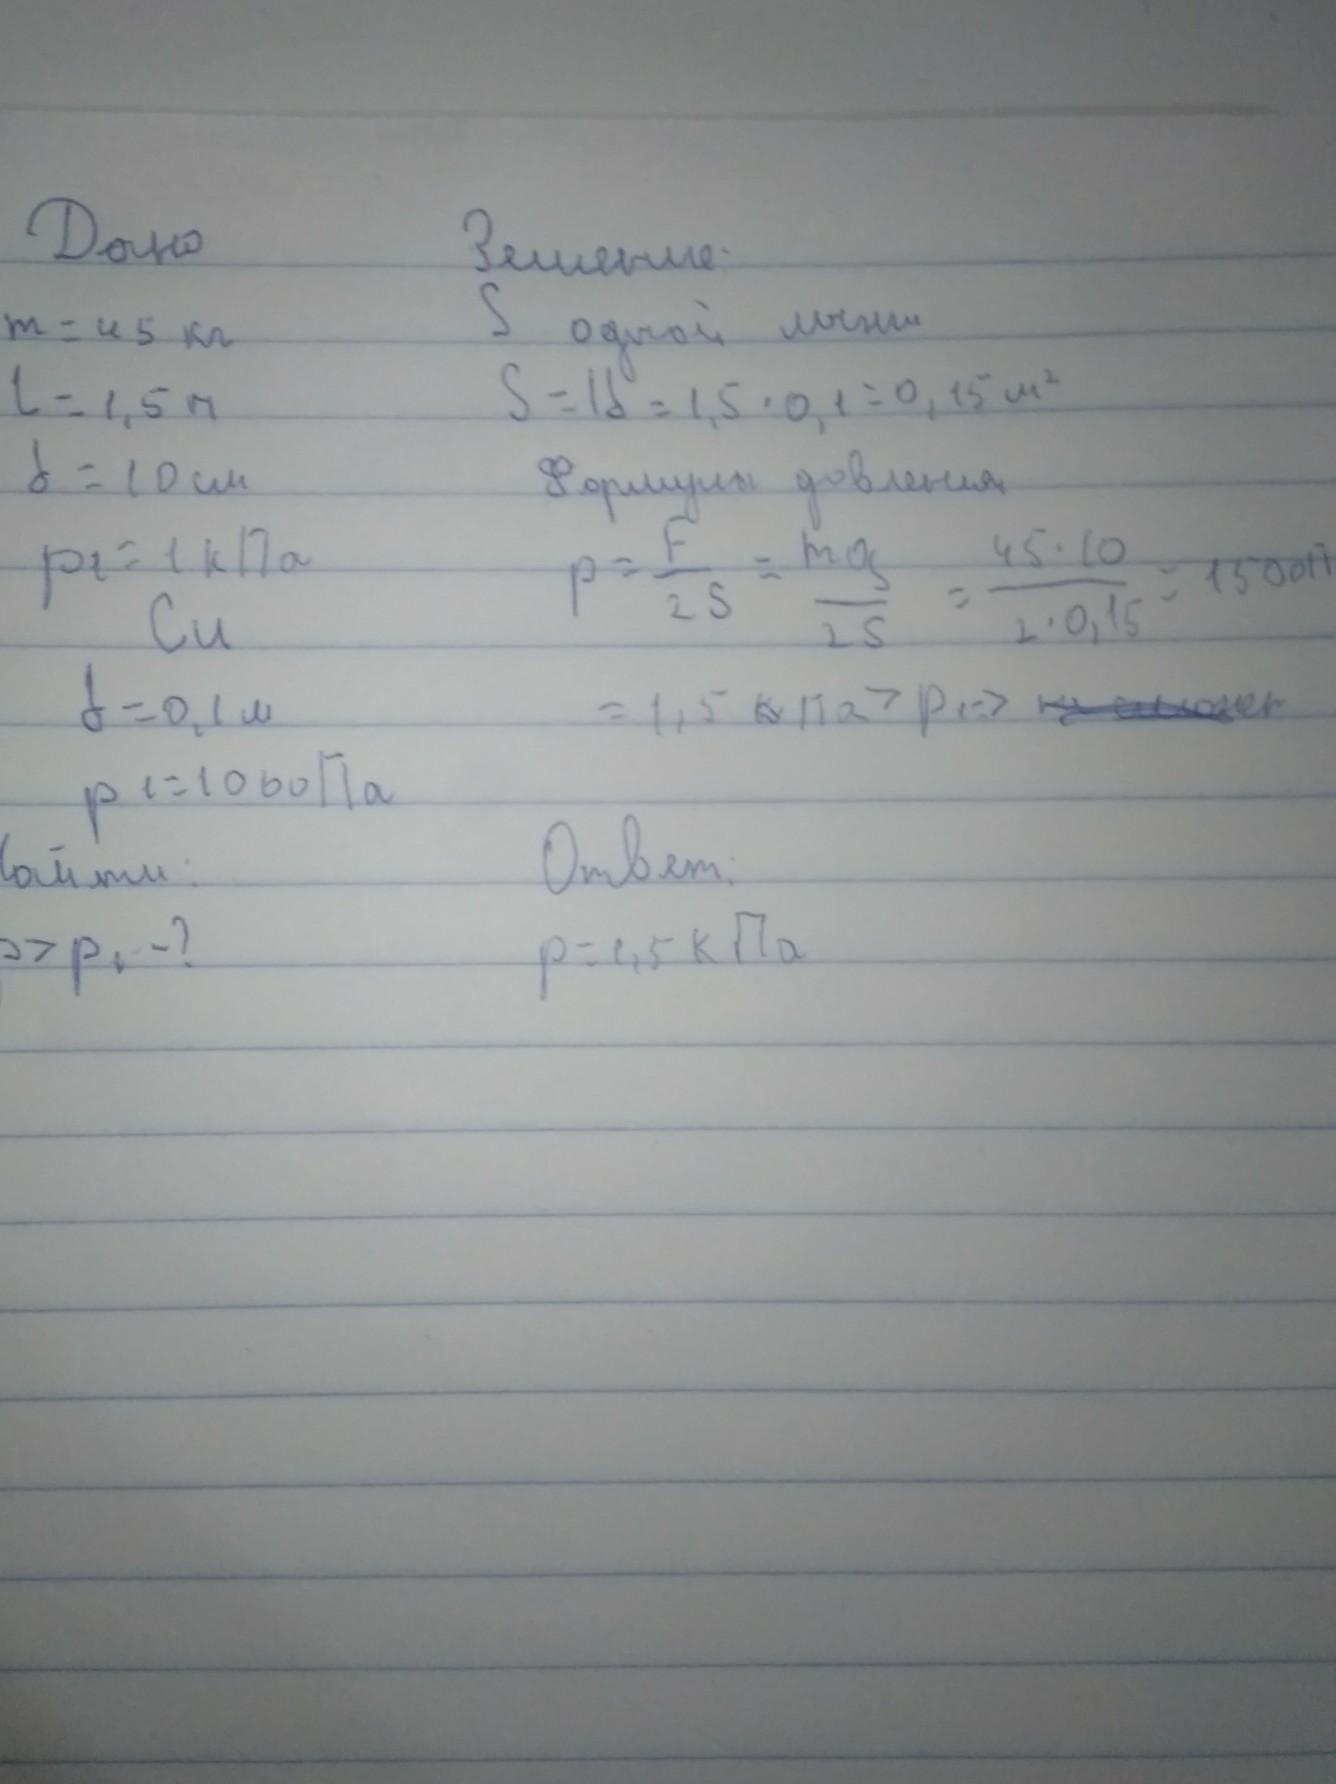 Дано
m = 45 кг
l = 1,5 м
d = 10 см
p1 = 1 кПа
Си
d = 0,1 м
p1 = 1000 Па
Найти:
p > p1 - ?
Решение:
S одной лыжи
S = ld = 1,5 · 0,1 = 0,15 м²
Формулы довления
p = F/2S = mg/2S = 45·10/2·0,15 = 1500П
= 1,5 кПа > p1 =>
Ответ:
p = 1,5 кПа